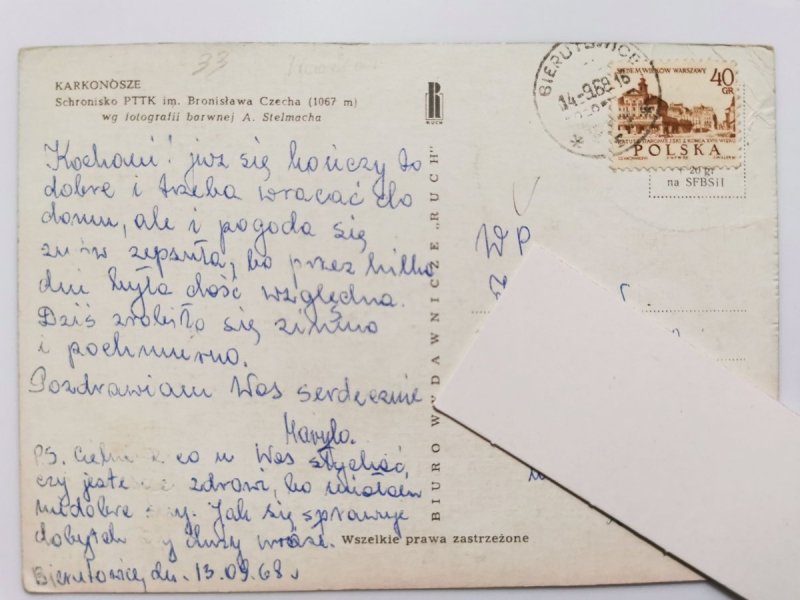 33
KARKONOSZE
Schronisko PTTK im. Bronisława Czecha (1067 m)
wg fotografii barwnej A. Stelmacha
Kochani! już się kończy to
dobre i trzeba wracać do
domu, ale i pogoda się
znów zepsuła, bo przez kilka
dni była dość względna.
Dziś zrobiło się zimno
i pochmurno.
Pozdrawiam Was serdecznie
Maryla.
PS. co u Was słychać,
czy zdrowi, bo miałam
niedobre Jak się sprawuje
dobytek duży
Bierutowice, dn. 13.09.68
RUCH
BIURO WYDAWNICZE „RUCH"
Wszelkie prawa zastrzeżone
BIERUTOWICE
14-9.68 16
SIEDEM WIEKÓW WARSZAWY
40
GR
POLSKA
+ 20 gr
na SFBSiI
WP